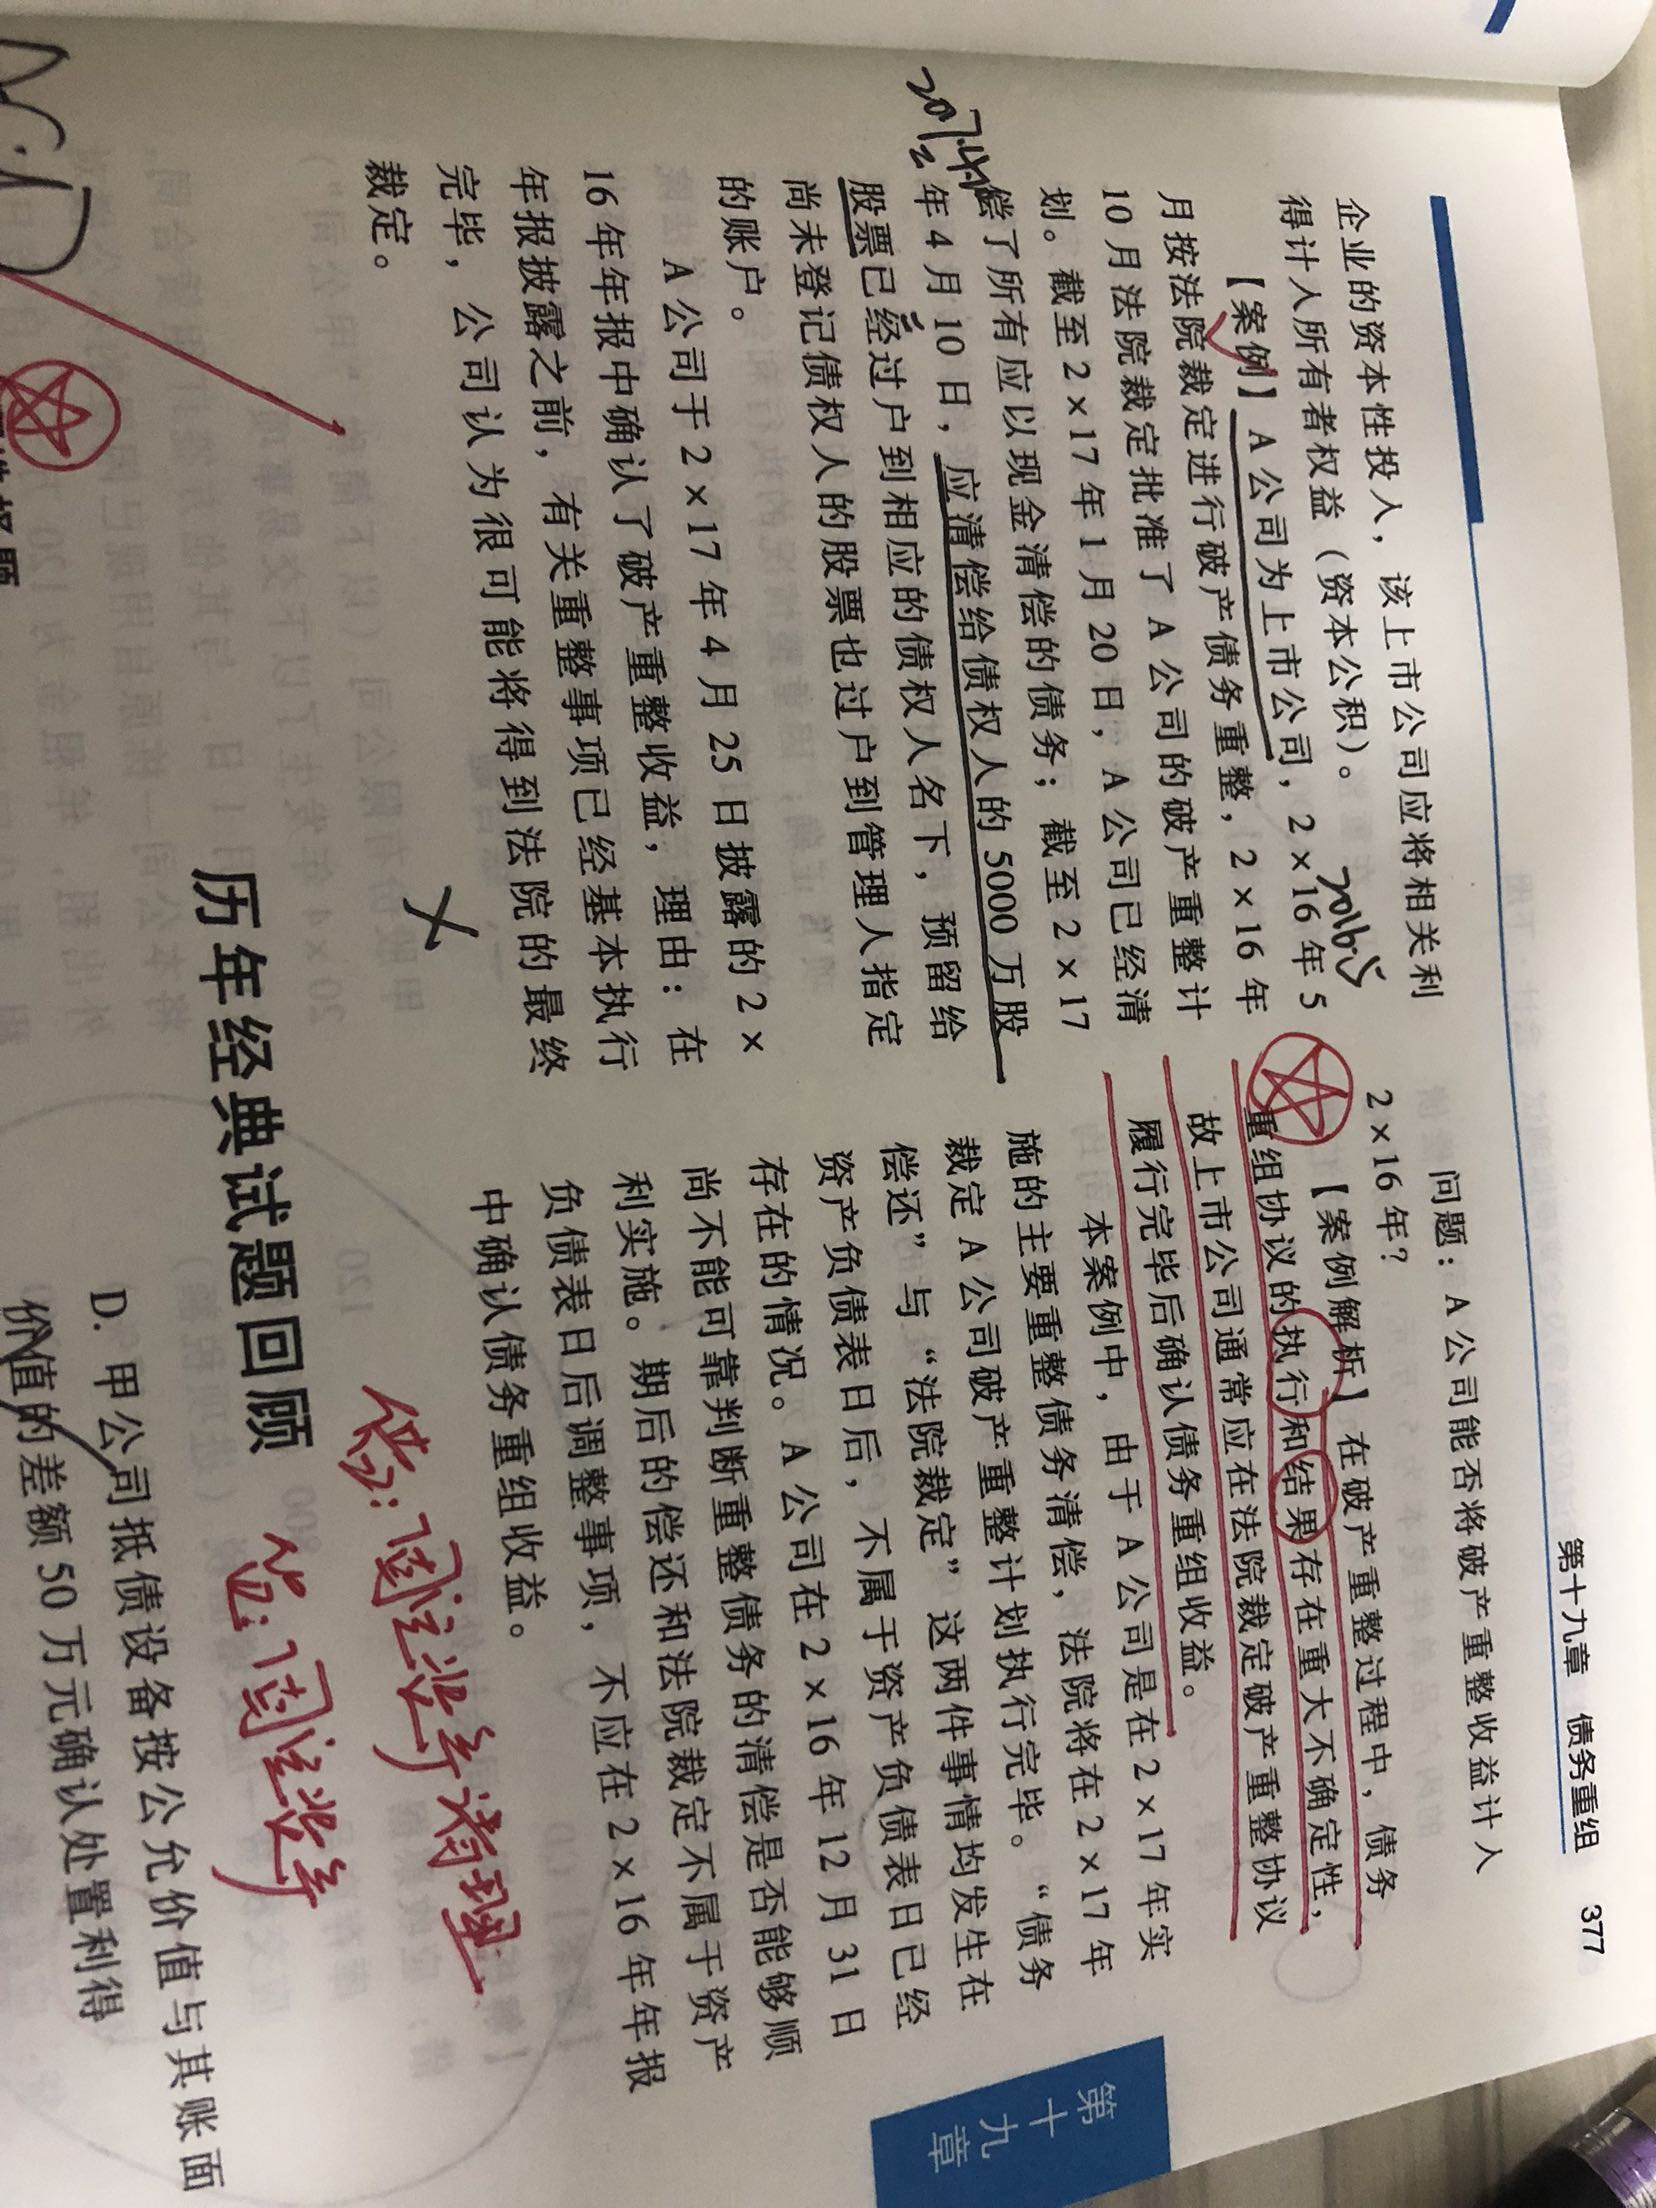 第十九章 债务重组 377
企业的资本性投入，该上市公司应将相关利
得计入所有者权益（资本公积）。
【案例】A公司为上市公司，2×16年5
月按法院裁定进行破产债务重整，2×16年
10月法院裁定批准了A公司的破产重整计
划。截至2×17年1月20日，A公司已经清
偿了所有应以现金清偿的债务；截至2×17
年4月10日，应清偿给债权人的5000万股
股票已经过户到相应的债权人名下，预留给
尚未登记债权人的股票也过户到管理人指定
的账户。
A公司于2×17年4月25日披露的2×
16年年报中确认了破产重整收益，理由：在
年报披露之前，有关重整事项已经基本执行
完毕，公司认为很可能将得到法院的最终
裁定。
2016.5
问题：A公司能否将破产重整收益计入
2×16年？
【案例解析】在破产重整过程中，债务
重组协议的执行和结果存在重大不确定性，
故上市公司通常应在法院裁定破产重整协议
履行完毕后确认债务重组收益。
本案例中，由于A公司是在2×17年实
施的主要重整债务清偿，法院将在2×17年
裁定A公司破产重整计划执行完毕。“债务
偿还”与“法院裁定”这两件事情均发生在
资产负债表日后，不属于资产负债表日已经
存在的情况。A公司在2×16年12月31日
尚不能可靠判断重整债务的清偿是否能够顺
利实施。期后的偿还和法院裁定不属于资产
负债表日后调整事项，不应在2×16年年报
中确认债务重组收益。
第十九章
历年经典试题回顾
D. 甲公司抵债设备按公允价值与其账面
价值的差额50万元确认处置利得